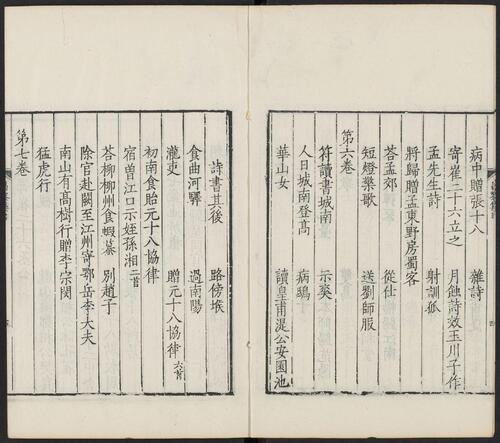 病中贈張十八 雜詩
寄崔二十六立之 月蝕詩效玉川子作
孟先生詩 射訓狐
將歸贈孟東野房蜀客
荅孟郊 從仕
短燈檠歌 送劉師服
第六卷
符讀書城南 示爽
人日城南登高 病鴟
華山女 讀皇甫湜公安園池
詩書其後 路傍堠
食曲河驛 過南陽
瀧吏 贈元十八協律六首
初南食貽元十八協律
宿曽江口示姪孫湘二首
荅柳柳州食蝦蟇 別趙子
除官赴闕至江州寄鄂岳李大夫
南山有高樹行贈李宗閔
猛虎行
第七卷